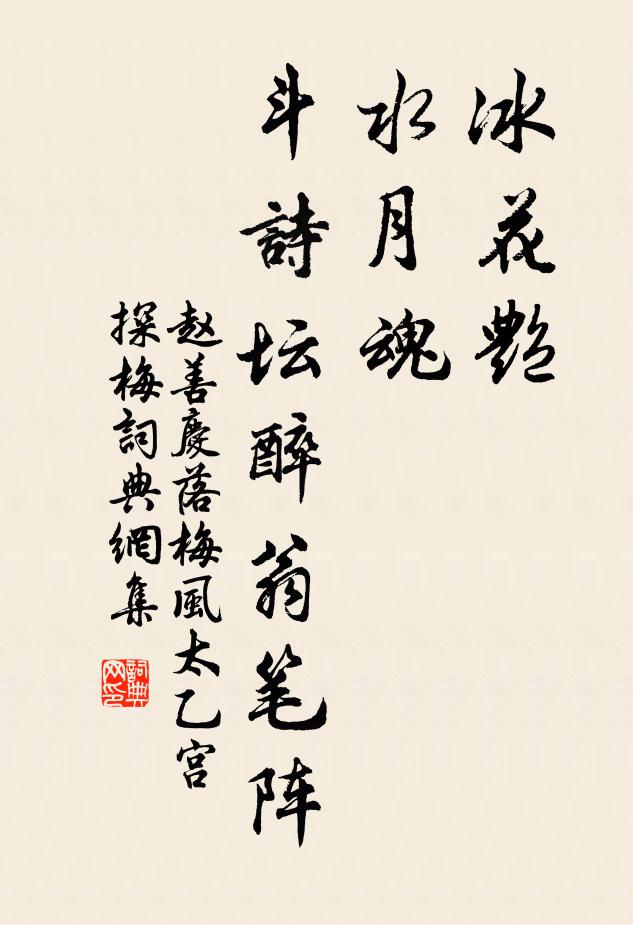 冰花艷
水月魂
斗詩坛醉翁笔阵
赵善慶落梅風太乙宫
探梅詞典網集
詞典网印